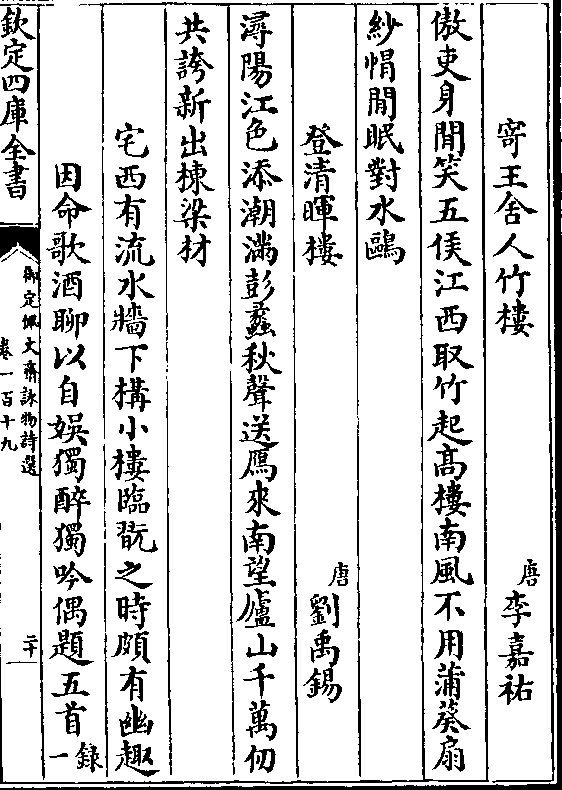 寄王舍人竹樓
唐李嘉祐
傲吏身閒笑五侯江西取竹起髙樓南風不用蒲葵扇
紗㡌閒眠對水鷗
登清暉樓
唐劉禹錫
潯陽江色添潮滿彭蠡秋聲送鴈來南望廬山千萬仞
共誇新出棟梁材
宅西有流水牆下構小樓臨翫之時頗有幽趣
因命歌酒聊以自娛獨醉獨吟偶題五首錄一
欽定四庫全書
御定佩文齋詠物詩選
卷一百十九
二十